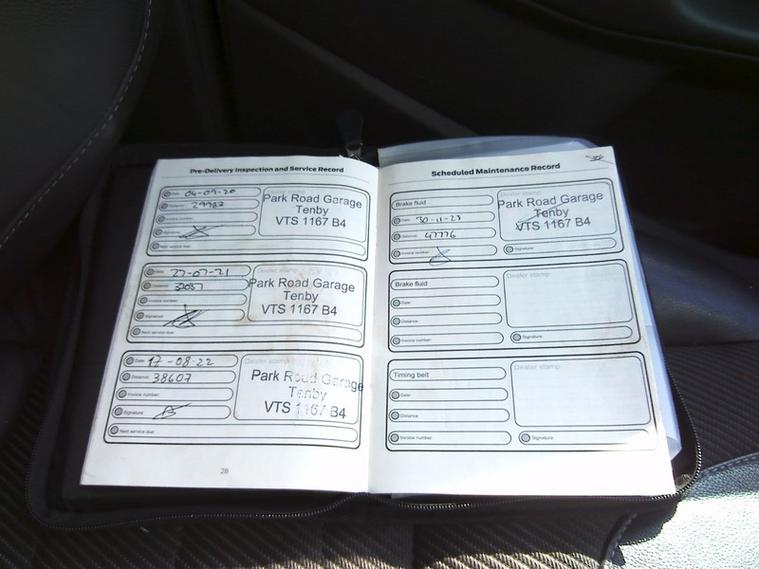 Pre-Delivery Inspection and Service Record
Date 04-09-20
Distance 29982
Invoice number
Signature
Next service due
Dealer stamp
Park Road Garage
Tenby
VTS 1167 B4
Date 27-07-21
Distance 32037
Invoice number
Signature
Next service due
Dealer stamp
Park Road Garage
Tenby
VTS 1167 B4
Date 17-08-22
Distance 38607
Invoice number
Signature
Next service due
Dealer stamp
Park Road Garage
Tenby
VTS 1167 B4
28
Scheduled Maintenance Record
Brake fluid
Date 30-11-23
Distance 47776
Invoice number
Dealer stamp
Park Road Garage
Tenby
VTS 1167 B4
Signature
Brake fluid
Date
Distance
Invoice number
Dealer stamp
Signature
Timing belt
Date
Distance
Invoice number
Dealer stamp
Signature